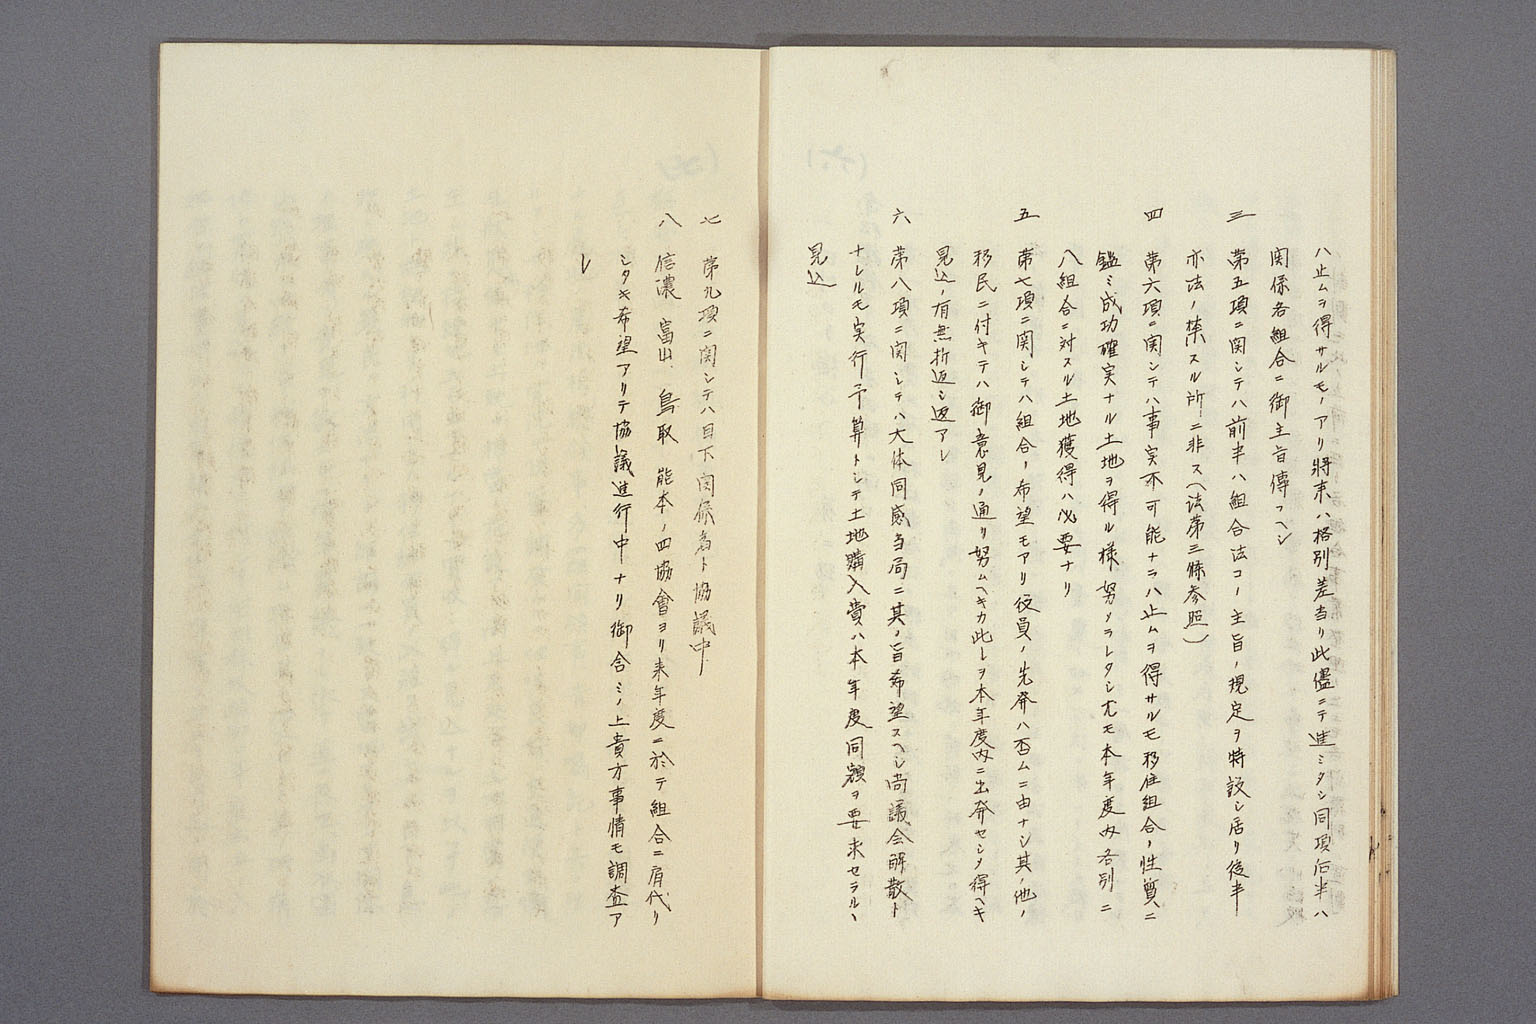 ハ止ムヲ得サルモノアリ將来ハ格別差当リ此儘ニテ進ミタシ同項后半ハ
関係各組合ニ御主旨傳フヘシ
三 第五項ニ関シテハ前半ハ組合法コノ主旨ノ規定ヲ特設シ居リ後半
亦法ノ禁スル所ニ非ス(法第三條参照)
四 第六項ニ関シテハ事実不可能ナラハ止ムヲ得サルモ移住組合ノ性質ニ
鑑ミ成功確実ナル土地ヲ得ル様努メラレタシ尤モ本年度内各別ニ
八組合ニ対スル土地獲得ハ必要ナリ
五 第七項ニ関シテハ組合ノ希望モアリ役員ノ先発ハ否ムニ由ナシ其ノ他ノ
移民ニ付キテハ御意見ノ通リ努ムヘキカ此レヲ本年度内ニ出発セシメ得ヘキ
見込ノ有無折返シ返アレ
六 第八項ニ関シテハ大体同感当局ニ其ノ旨希望スヘシ尚議会解散ト
ナレルモ実行予算トシテ土地購入費ハ本年度同額ヲ要求セラルヽ
見込
七 第九項ニ関シテハ目下関係者ト協議中
八 信濃 富山 鳥取 熊本ノ四協會ヨリ来年度ニ於テ組合ニ肩代リ
シタキ希望アリテ協議進行中ナリ御含ミノ上貴方事情モ調査ア
レ